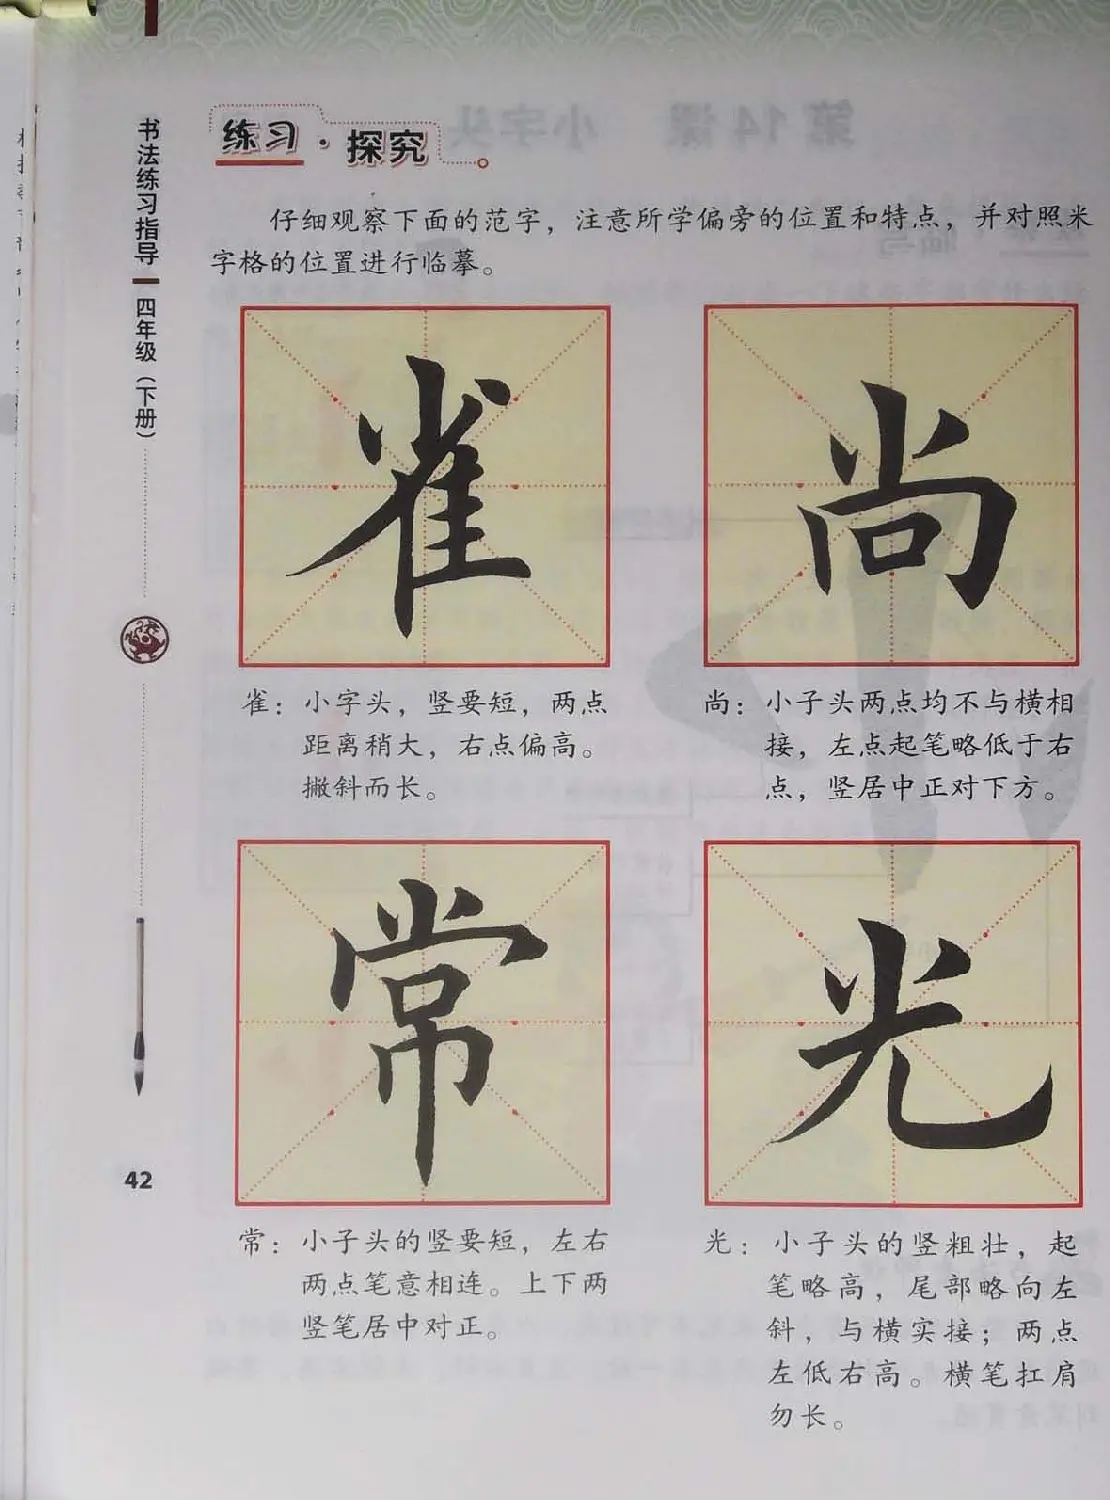 书法练习指导
四年级（下册）
42
练习·探究
仔细观察下面的范字，注意所学偏旁的位置和特点，并对照米
字格的位置进行临摹。
雀
尚
雀：小字头，竖要短，两点
距离稍大，右点偏高。
撇斜而长。
尚：小子头两点均不与横相
接，左点起笔略低于右
点，竖居中正对下方。
常
光
常：小子头的竖要短，左右
两点笔意相连。上下两
竖笔居中对正。
光：小子头的竖粗壮，起
笔略高，尾部略向左
斜，与横实接；两点
左低右高。横笔扛肩
勿长。